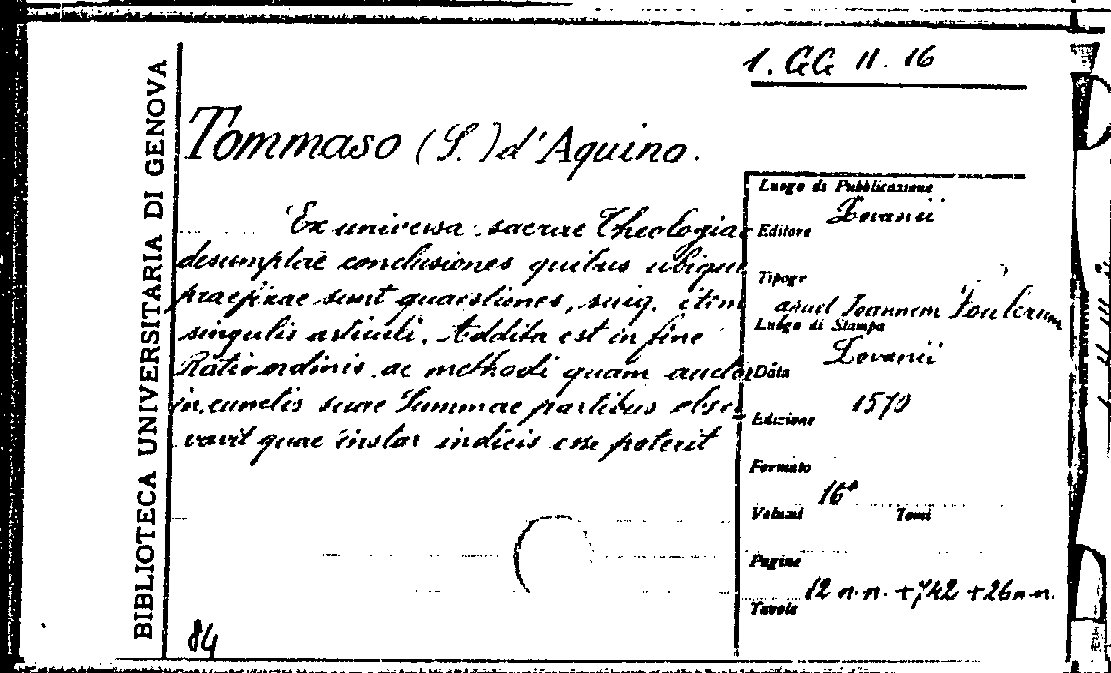 1. GG II. 16
BIBLIOTECA UNIVERSITARIA DI GENOVA
Tommaso (S.) d'Aquino.
Ex universa sacrae Theologiae
desumptae conclusiones quibus ubique
praefixae sunt quaestiones, suig. item
singulis articuli. Addita est in fine
Ratio ordinis ac methodi quam auctor
in cunctis suae Summae partibus obser
vavit quae instar indicis esse poterit
84
Luogo di Pubblicazione
Lovanii
Editore
Tipogr
apud Joannem Foulerum
Luogo di Stampa
Lovanii
Data
1570
Edizione
Formato
16°
Volumi Tomi
Pagine
12 n.n. + 742 + 26 n.n.
Tavole